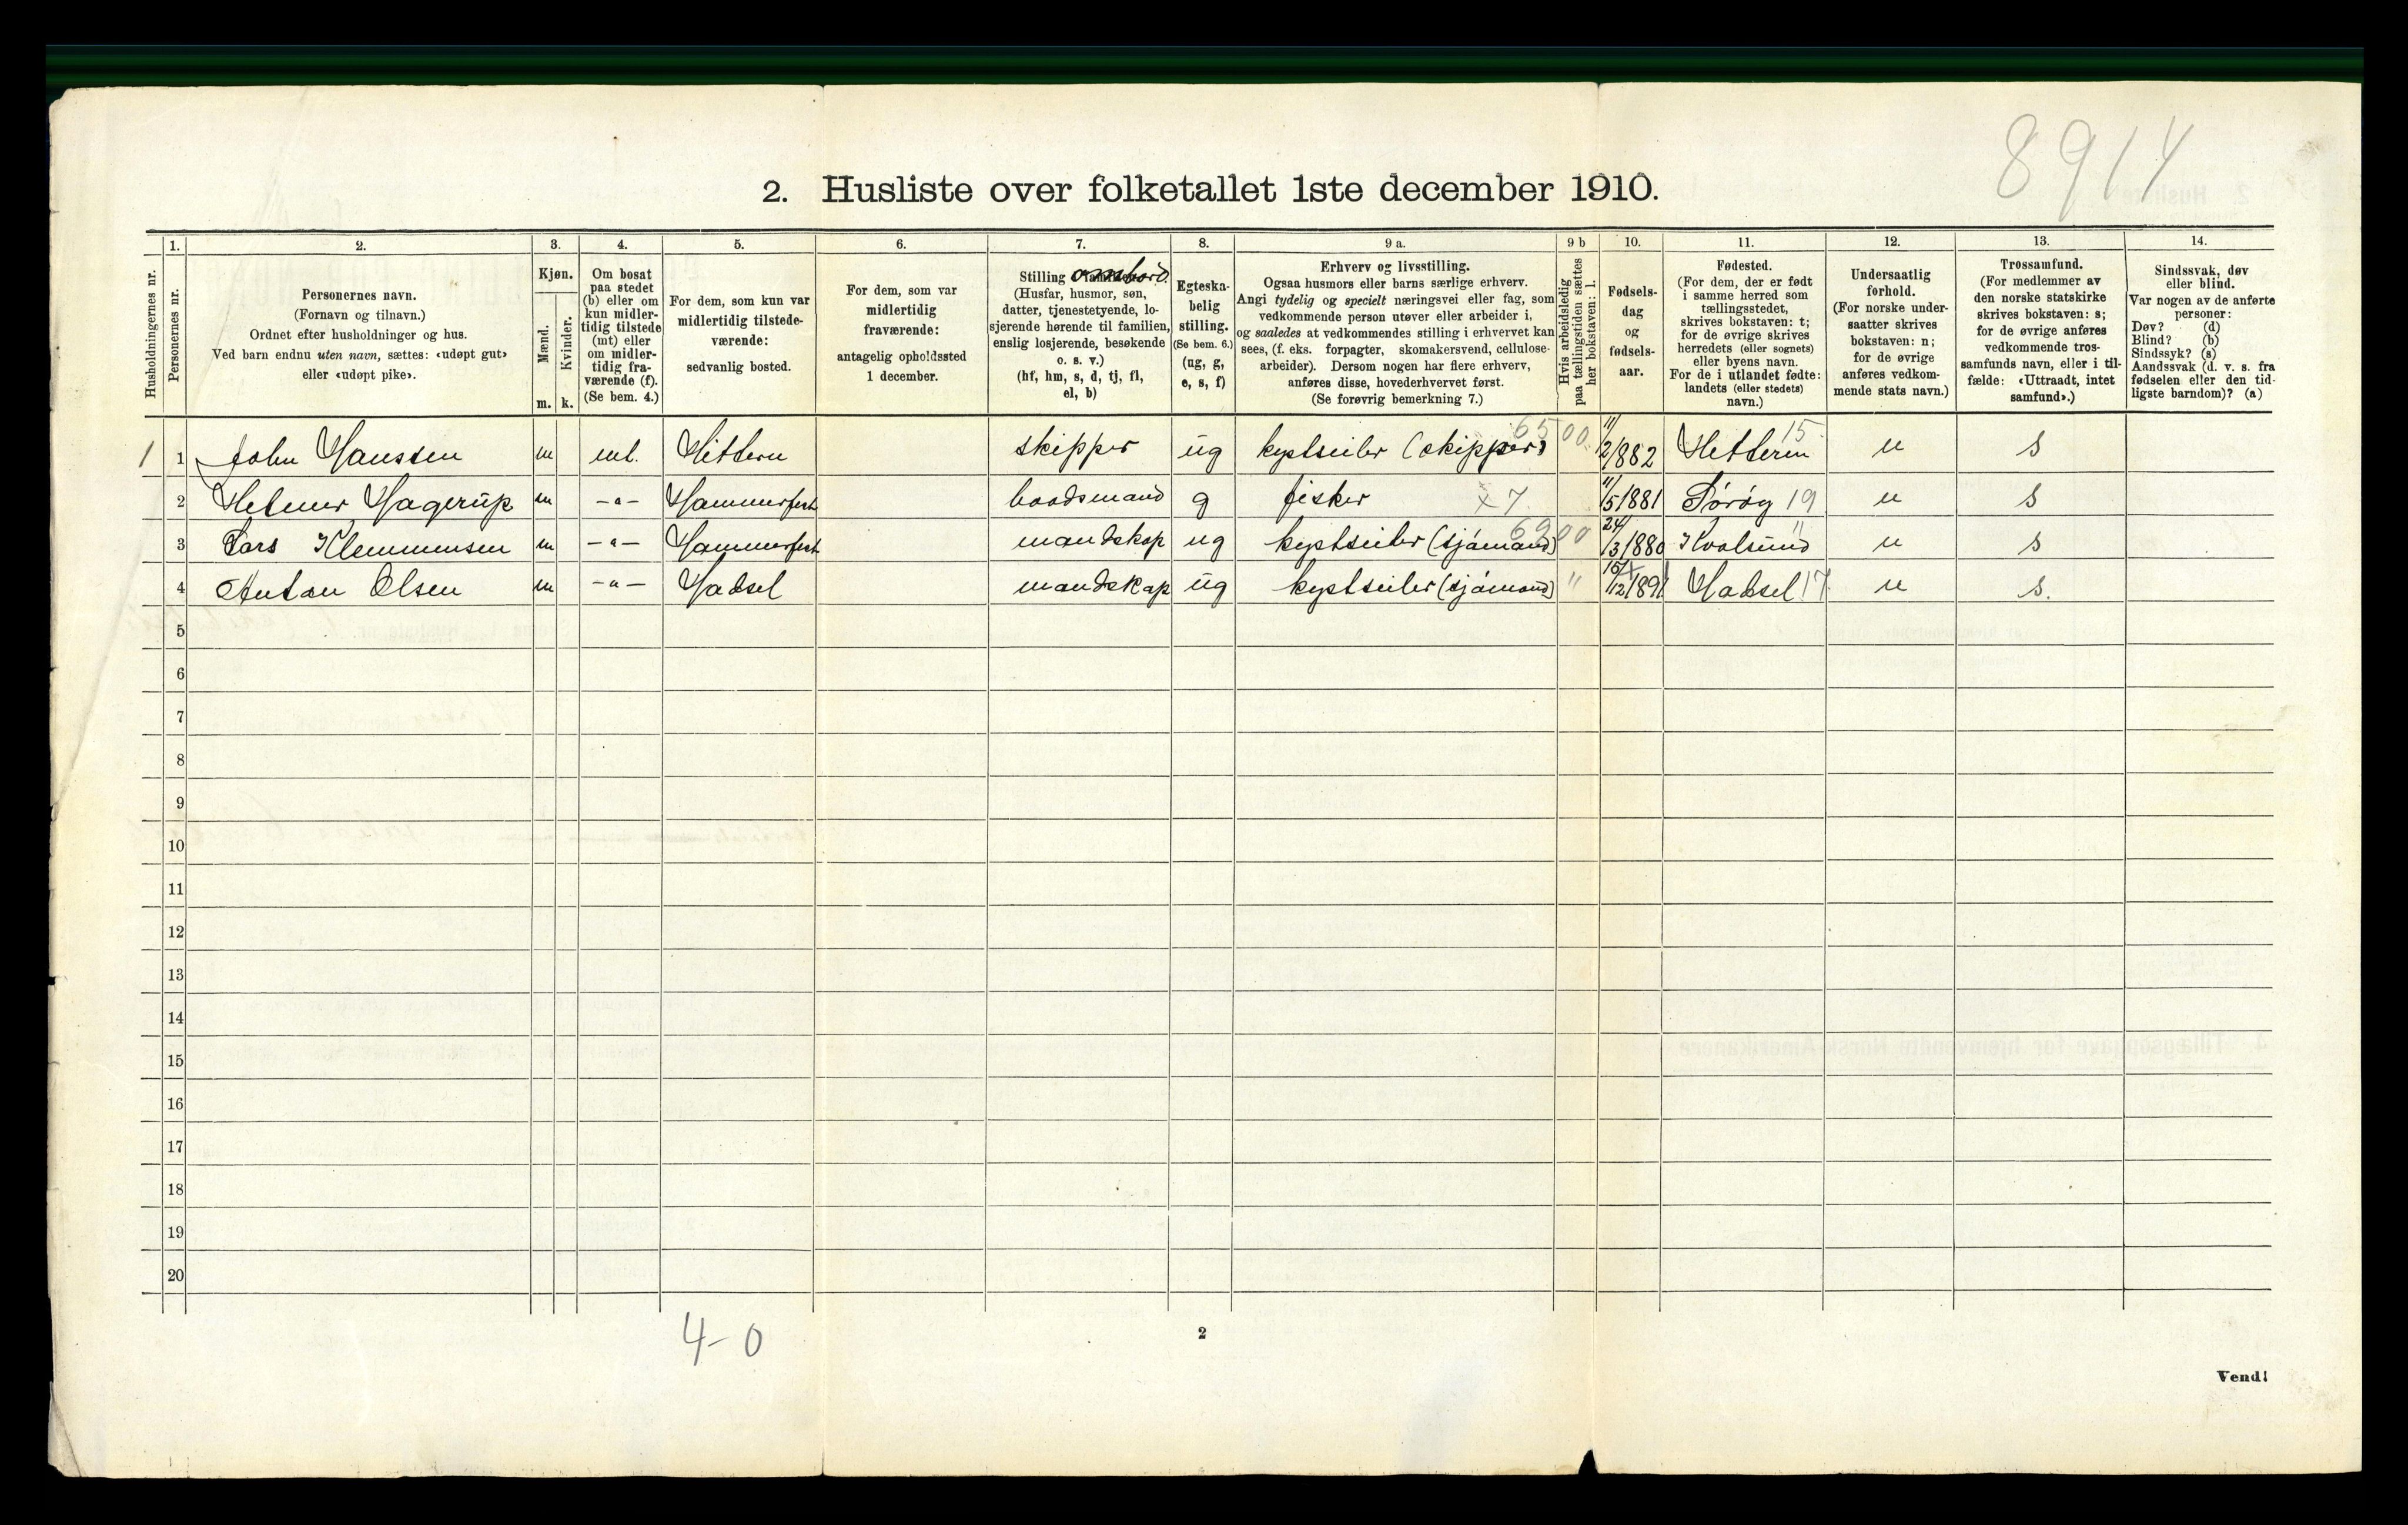 8914
2. Husliste over folketallet 1ste december 1910.
Husholdningernes nr.
1.
Personernes nr.
2.
Personernes navn.
(Fornavn og tilnavn.)
Ordnet efter husholdninger og hus.
Ved barn endnu uten navn, sættes: «udøpt gut»
eller «udøpt pike».
3.
Kjøn.
Mænd.
Kvinder.
m. k.
4.
Om bosat
paa stedet
(b) eller om
kun midler-
tidig tilstede
(mt) eller
om midler-
tidig fra-
værende (f).
(Se bem. 4.)
5.
For dem, som kun var
midlertidig tilstede-
værende:
sedvanlig bosted.
6.
For dem, som var
midlertidig
fraværende:
antagelig opholdssted
1 december.
7.
Stilling ombord.
(Husfar, husmor, søn,
datter, tjenestetyende, lo-
sjerende hørende til familien,
enslig losjerende, besøkende
o. s. v.)
(hf, hm, s, d, tj, fl,
el, b)
8.
Egteska-
belig
stilling.
(Se bem. 6.)
(ug, g,
e, s, f)
9 a.
Erhverv og livsstilling.
Ogsaa husmors eller barns særlige erhverv.
Angi tydelig og specielt næringsvei eller fag, som
vedkommende person utøver eller arbeider i,
og saaledes at vedkommendes stilling i erhvervet kan
sees, (f. eks. forpagter, skomakersvend, cellulose-
arbeider). Dersom nogen har flere erhverv,
anføres disse, hovederhvervet først.
(Se forøvrig bemerkning 7.)
9 b
Hvis arbeidsledig
paa tællingstiden sættes
her bokstaven: l.
10.
Fødsels-
dag
og
fødsels-
aar.
11.
Fødested.
(For dem, der er født
i samme herred som
tællingsstedet,
skrives bokstaven: t;
for de øvrige skrives
herredets (eller sognets)
eller byens navn.
For de i utlandet fødte:
landets (eller stedets)
navn.)
12.
Undersaatlig
forhold.
(For norske under-
saatter skrives
bokstaven: n;
for de øvrige
anføres vedkom-
mende stats navn.)
13.
Trossamfund.
(For medlemmer av
den norske statskirke
skrives bokstaven: s;
for de øvrige anføres
vedkommende tros-
samfunds navn, eller i til-
fælde: «Uttraadt, intet
samfund».)
14.
Sindssvak, døv
eller blind.
Var nogen av de anførte
personer:
Døv? (d)
Blind? (b)
Sindssyk? (s)
Aandssvak (d. v. s. fra
fødselen eller den tid-
ligste barndom)? (a)
1 1 John Hanssen m mt. Hittern skipper ug kystseiler (skipper) 6500 11/2/882 Hitteren 15 n s
2 Helmer Hagerup m -"- Hammerfest baadsmand g fisker x 7 11/5/1881 Sørøy 19 n s
3 Lars Klemmensen m -"- Hammerfest mandskap ug kystseiler (sjømand) 6900 24/3/1880 Kvalsund " n s
4 Anton Olsen m -"- Hadsel mandskap ug kystseiler (sjømand) " 15/12/1891 Hadsel 17 n s.
5
6
7
8
9
10
11
12
13
14
15
16
17
18
19
20
4-0
2
Vend!